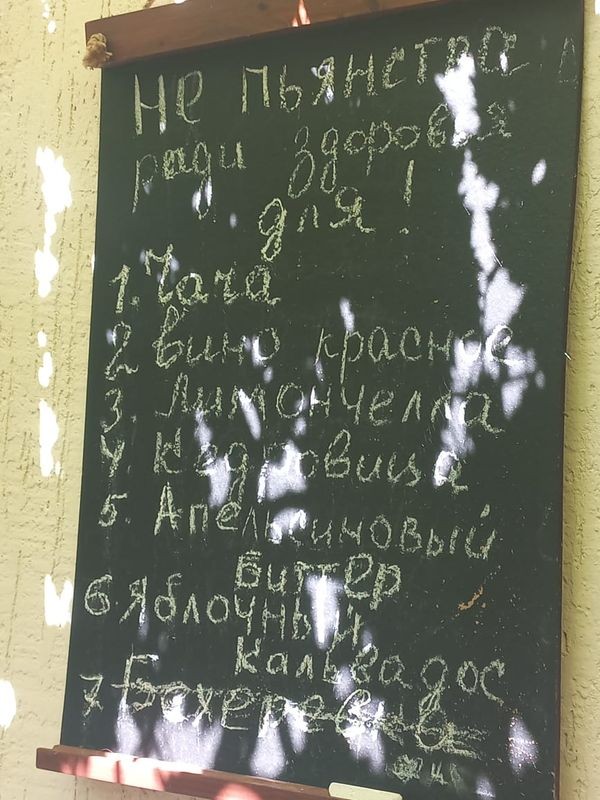 Не пьянства
ради здоровья
для!
1. Чача
2 вино красное
3. Лимончелла
4. Кедровица
5. Апельсиновый
биттер
6. Яблочный
Кальвадос
7